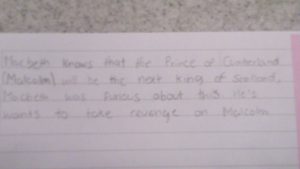 Macbeth knows that the Prince of Cumberland
(Malcolm) will be the next king of Scotland.
Macbeth was furious about this. He's
wants to take revenge on Malcolm